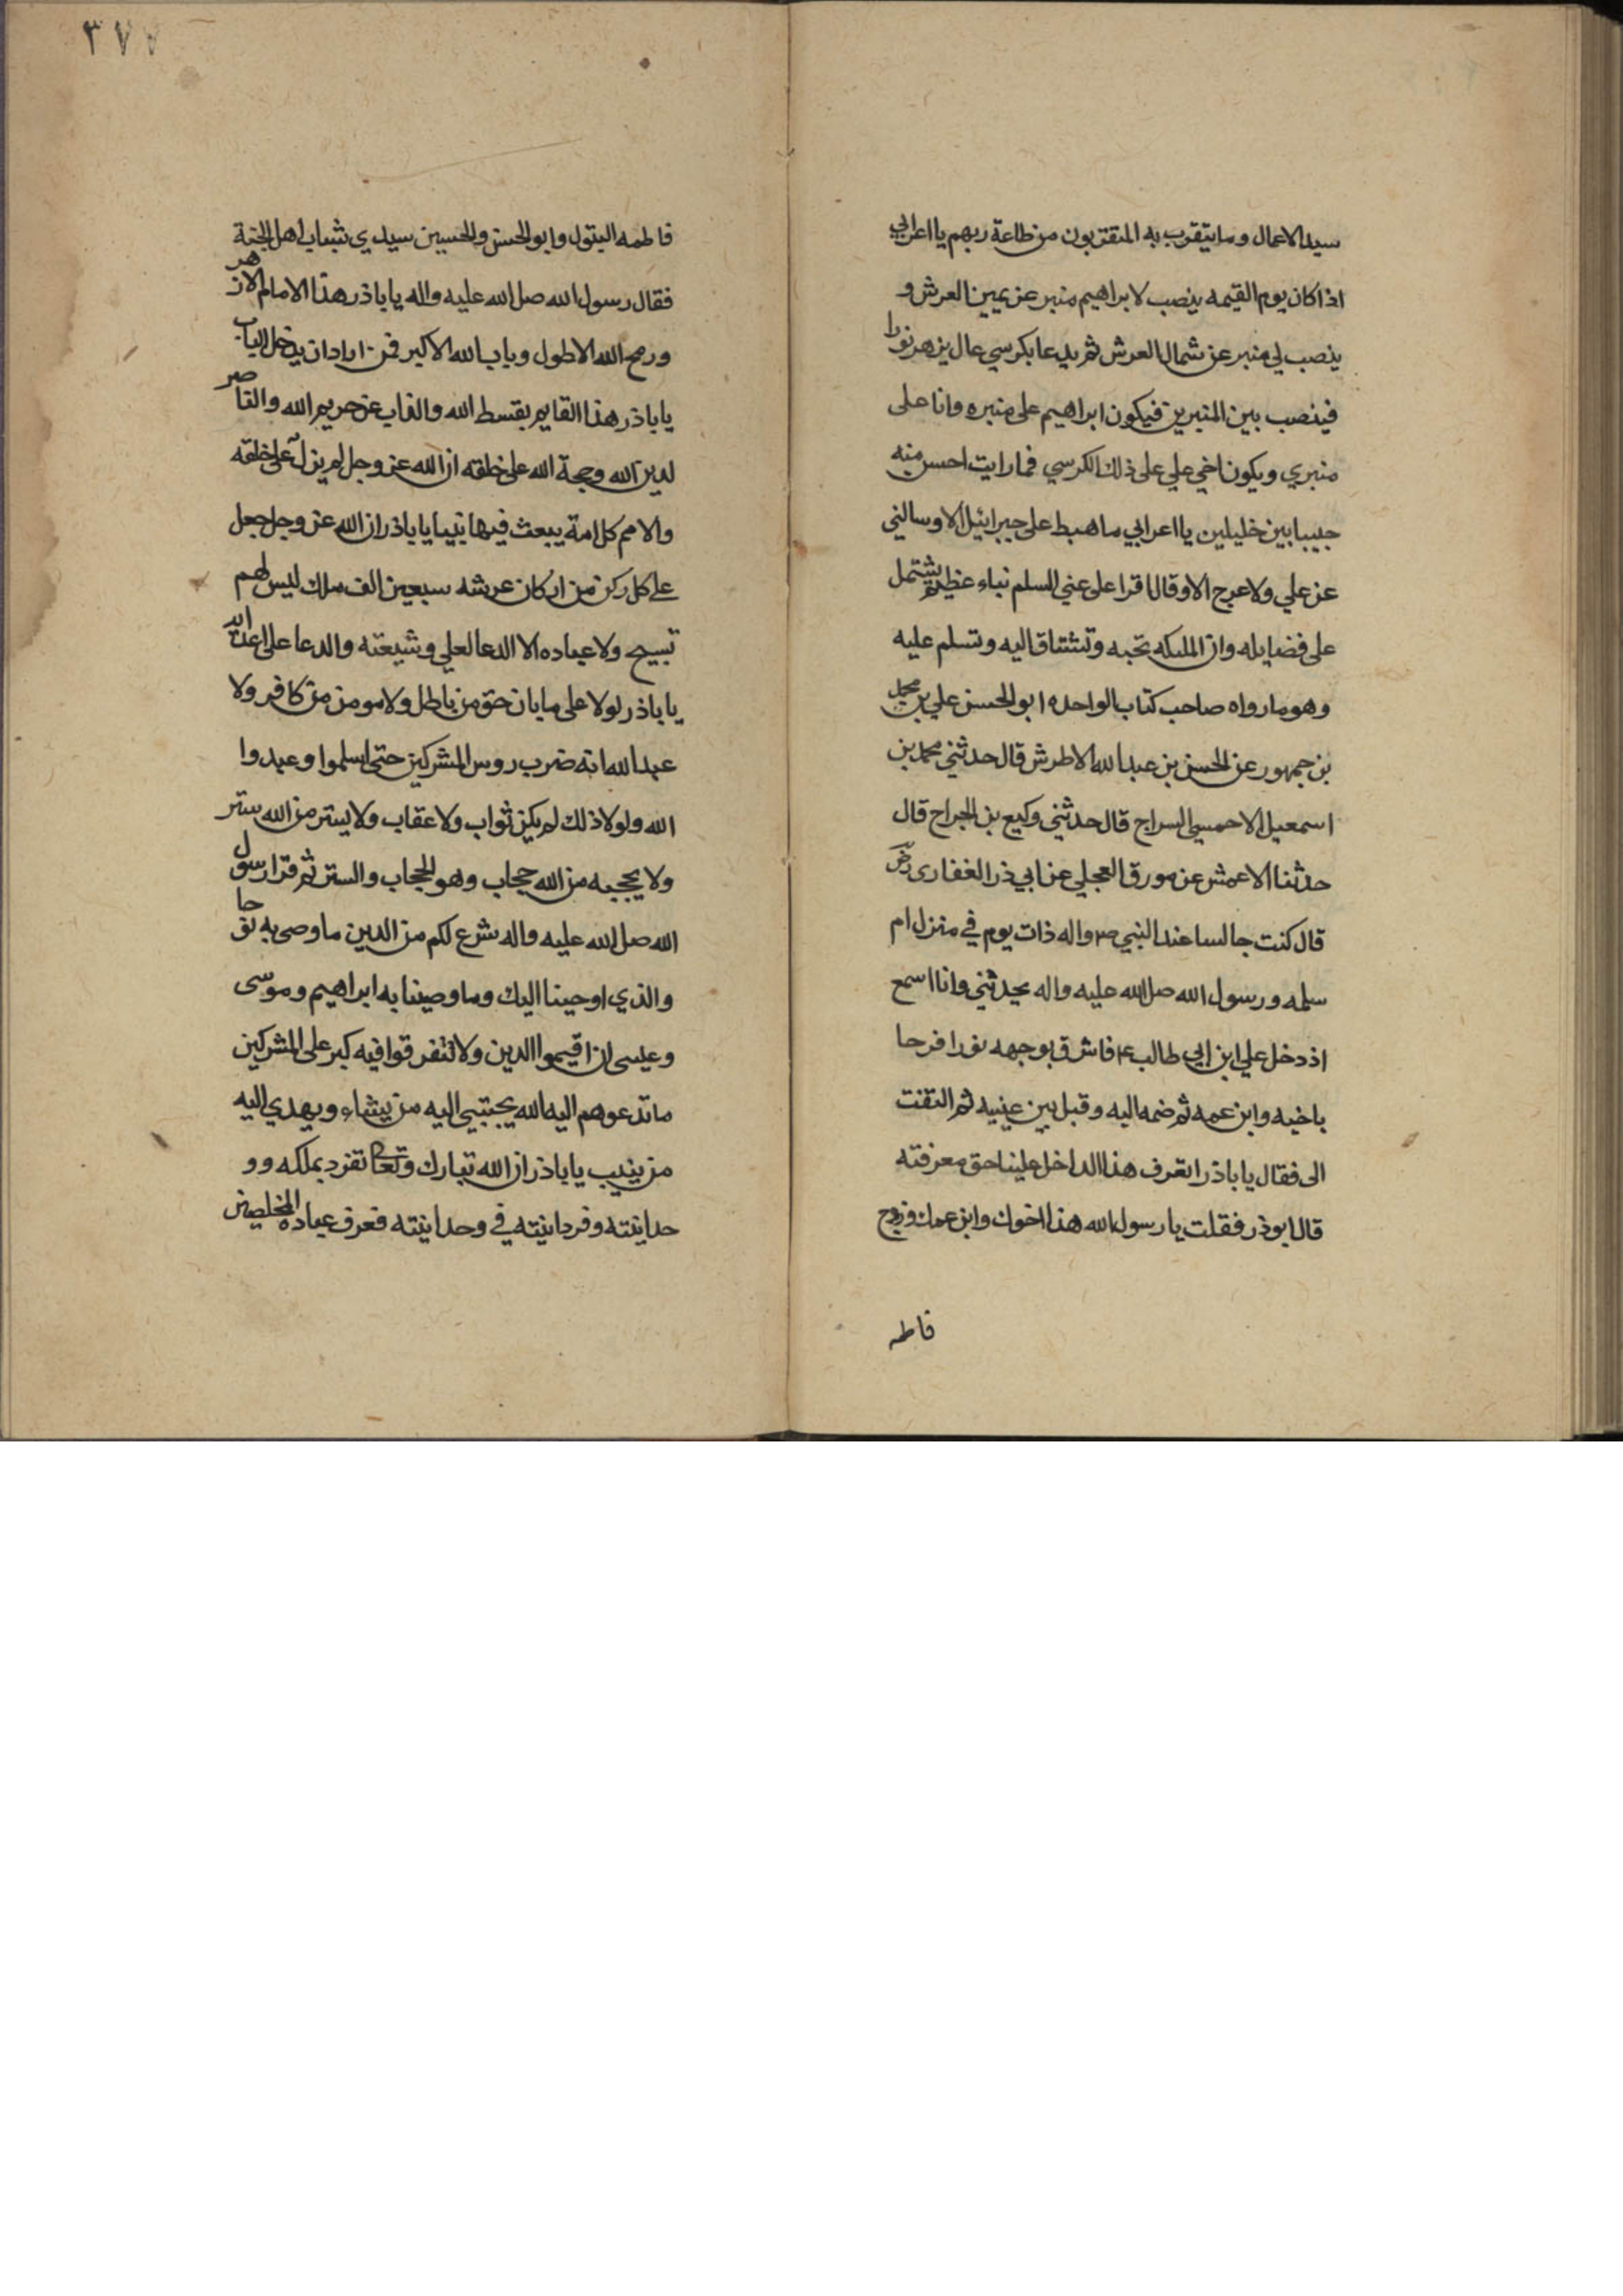 سيد الاعمال وما يتقرب به المتقربون من طاعة ربهم يا اعرابي
اذا كان يوم القيمه ينصب لابراهيم منبر عن يمين العرش و
ينصب لي منبر عن شمال العرش ثم يدعا بكرسي عال يزهر نورا
فينصب بين المنبرين فيكون ابراهيم على منبره وانا على
منبري ويكون اخي علي على ذلك الكرسي فما رايت احسن منه
حبيبا بين خليلين يا اعرابي ما هبط على جبرائيل الا وسالني
عن علي ولا عرج الا وقال اقرا على عني السلم نباء عظيم يشتمل
على فضايله وان الملىكه تحبه وتشتاق اليه وتسلم عليه
وهو ما رواه صاحب كتاب الواحده ابو الحسن علي بن محمد
بن جمهور عن الحسن بن عبد الله الاطرش قال حدثني محمد بن
اسمعيل الاحمسي السراج قال حدثني وكيع بن الجراح قال
حدثنا الاعمش عن مورق العجلي عن ابي ذر الغفاري رض
قال كنت جالسا عند النبي ص واله ذات يوم في منزل ام
سلمه ورسول الله صل الله عليه واله يحدثني وانا اسمع
اذ دخل علي ابن ابي طالب ع فاشرق بوجهه نورا فرحا
باخيه وابن عمه ثم ضمه اليه وقبل بين عينيه ثم التفت
الى فقال يا باذر اتعرف هذا الداخل علينا حق معرفته
قال ابوذر فقلت يا رسول الله هذا اخوك وابن عمك وزوج
فاطمه
٣٧٧
فاطمه البتول وابو الحسن والحسين سيدي شباب اهل الجنة
فقال رسول الله صل الله عليه واله يا باذر هذا الامام الازهر
ورمح الله الاطول وباب الله الاكبر فمن اراد ان يدخل الباب
يا باذر هذا القايم بقسط الله والذاب عن حريم الله والناصر
لدين الله وحجة الله على خلقه ان الله عز وجل لم يزل على خلقه
والامم كل امة يبعث فيها نبيا يا باذر ان الله عز وجل جعل
على كل ركن من اركان عرشه سبعين الف ملك ليس لهم
تسبيح ولا عباده الا الدعا لعلي وشيعته والدعا على اعدائه
يا باذر لولا على ما بان حق من باطل ولا مومن من كافر ولا
عبد الله انه ضرب روس المشركين حتى اسلموا وعبدوا
الله ولولا ذلك لم يكن ثواب ولا عقاب ولا يستر من الله ستر
ولا يحجبه من الله حجاب وهو الحجاب والستر ثم قرا رسول
الله صل الله عليه واله شرع لكم من الدين ما وصى به نوحا
والذي اوحينا اليك وما وصينا به ابراهيم وموسى
وعيسى ان اقيموا الدين ولا تتفرقوا فيه كبر على المشركين
ما تدعوهم اليه الله يجتبي اليه من يشاء ويهدي اليه
من ينيب يا باذر ان الله تبارك وتعا تفرد بملكه وو
حدانيته وفردانيته في وحدانيته فعرف عباده المخلصين